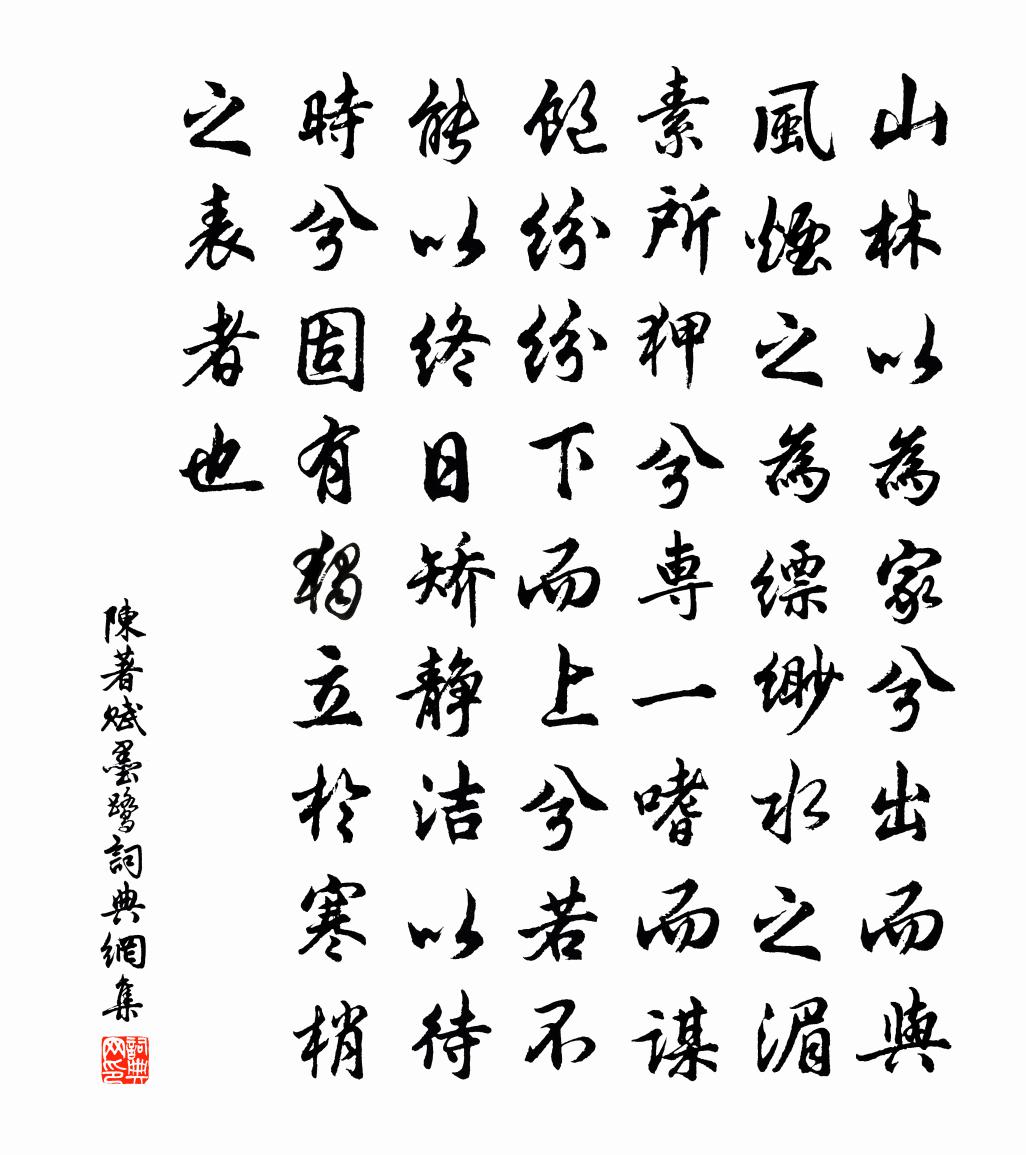 山林以為家兮出而與
風煙之為縹緲水之湄
素所狎兮専一嗜而謀
飽紛紛下而上兮若不
能以终日矫静洁以待
時兮固有獨立於寒梢
之表者也
陳著賦墨鷺詞典網集
詞典网印